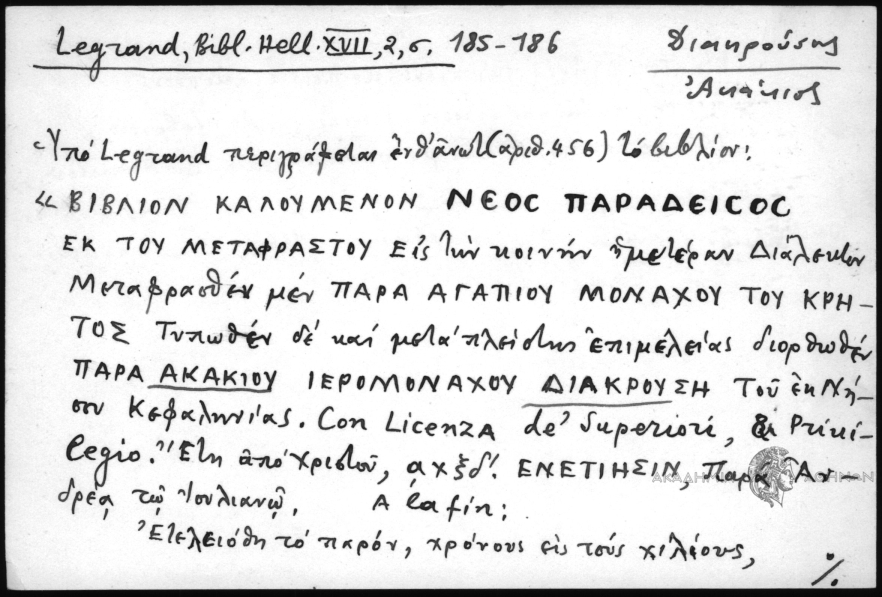 Legrand, Bibl. Hell. XVII, 2, σ. 185-186
Διακρούσης
Ἀκάκιος
Ὑπό Legrand περιγράφεται (ἀριθ. 456) τό βιβλίον:
«ΒΙΒΛΙΟΝ ΚΑΛΟΥΜΕΝΟΝ ΝΕΟΣ ΠΑΡΑΔΕΙΣΟΣ
ΕΚ ΤΟΥ ΜΕΤΑΦΡΑΣΤΟΥ Εἰς τὴν κοινήν ἡμετέραν Διάλεκτον
Μεταφρασθέν μέν ΠΑΡΑ ΑΓΑΠΙΟΥ ΜΟΝΑΧΟΥ ΤΟΥ ΚΡΗ-
ΤΟΣ Τυπωθέν δέ καί μετά πλείστης ἐπιμελείας διορθωθέν
ΠΑΡΑ ΑΚΑΚΙΟΥ ΙΕΡΟΜΟΝΑΧΟΥ ΔΙΑΚΡΟΥΣΗ Τοῦ ἐκ Νή-
σου Κεφαληνίας. Con Licenza de' Superiori, & Privi-
legio. Ἔτη ἀπό Χριστοῦ, αχξδ'. ΕΝΕΤΙΗΣΙΝ, Παρά Ἀν-
δρέᾳ τῷ Ἰουλιανῷ. A la fin:
Ἐτελειόθη τό παρόν, χρόνους εἰς τούς χιλέους,
%
ΑΚΑΔΗΜΙΑ ΑΘΗΝΩΝ